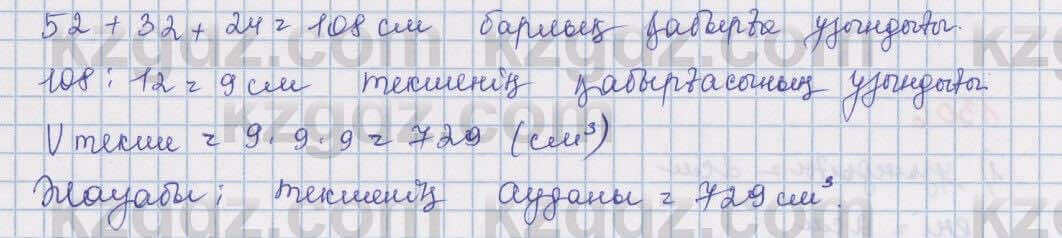 52 + 32 + 24 = 108 см барлық қабырға ұзындығы.
108 : 12 = 9 см текшенің қабырғасының ұзындығы.
V текше = 9 · 9 · 9 = 729 (см³)
Жауабы: текшенің ауданы = 729 см³.